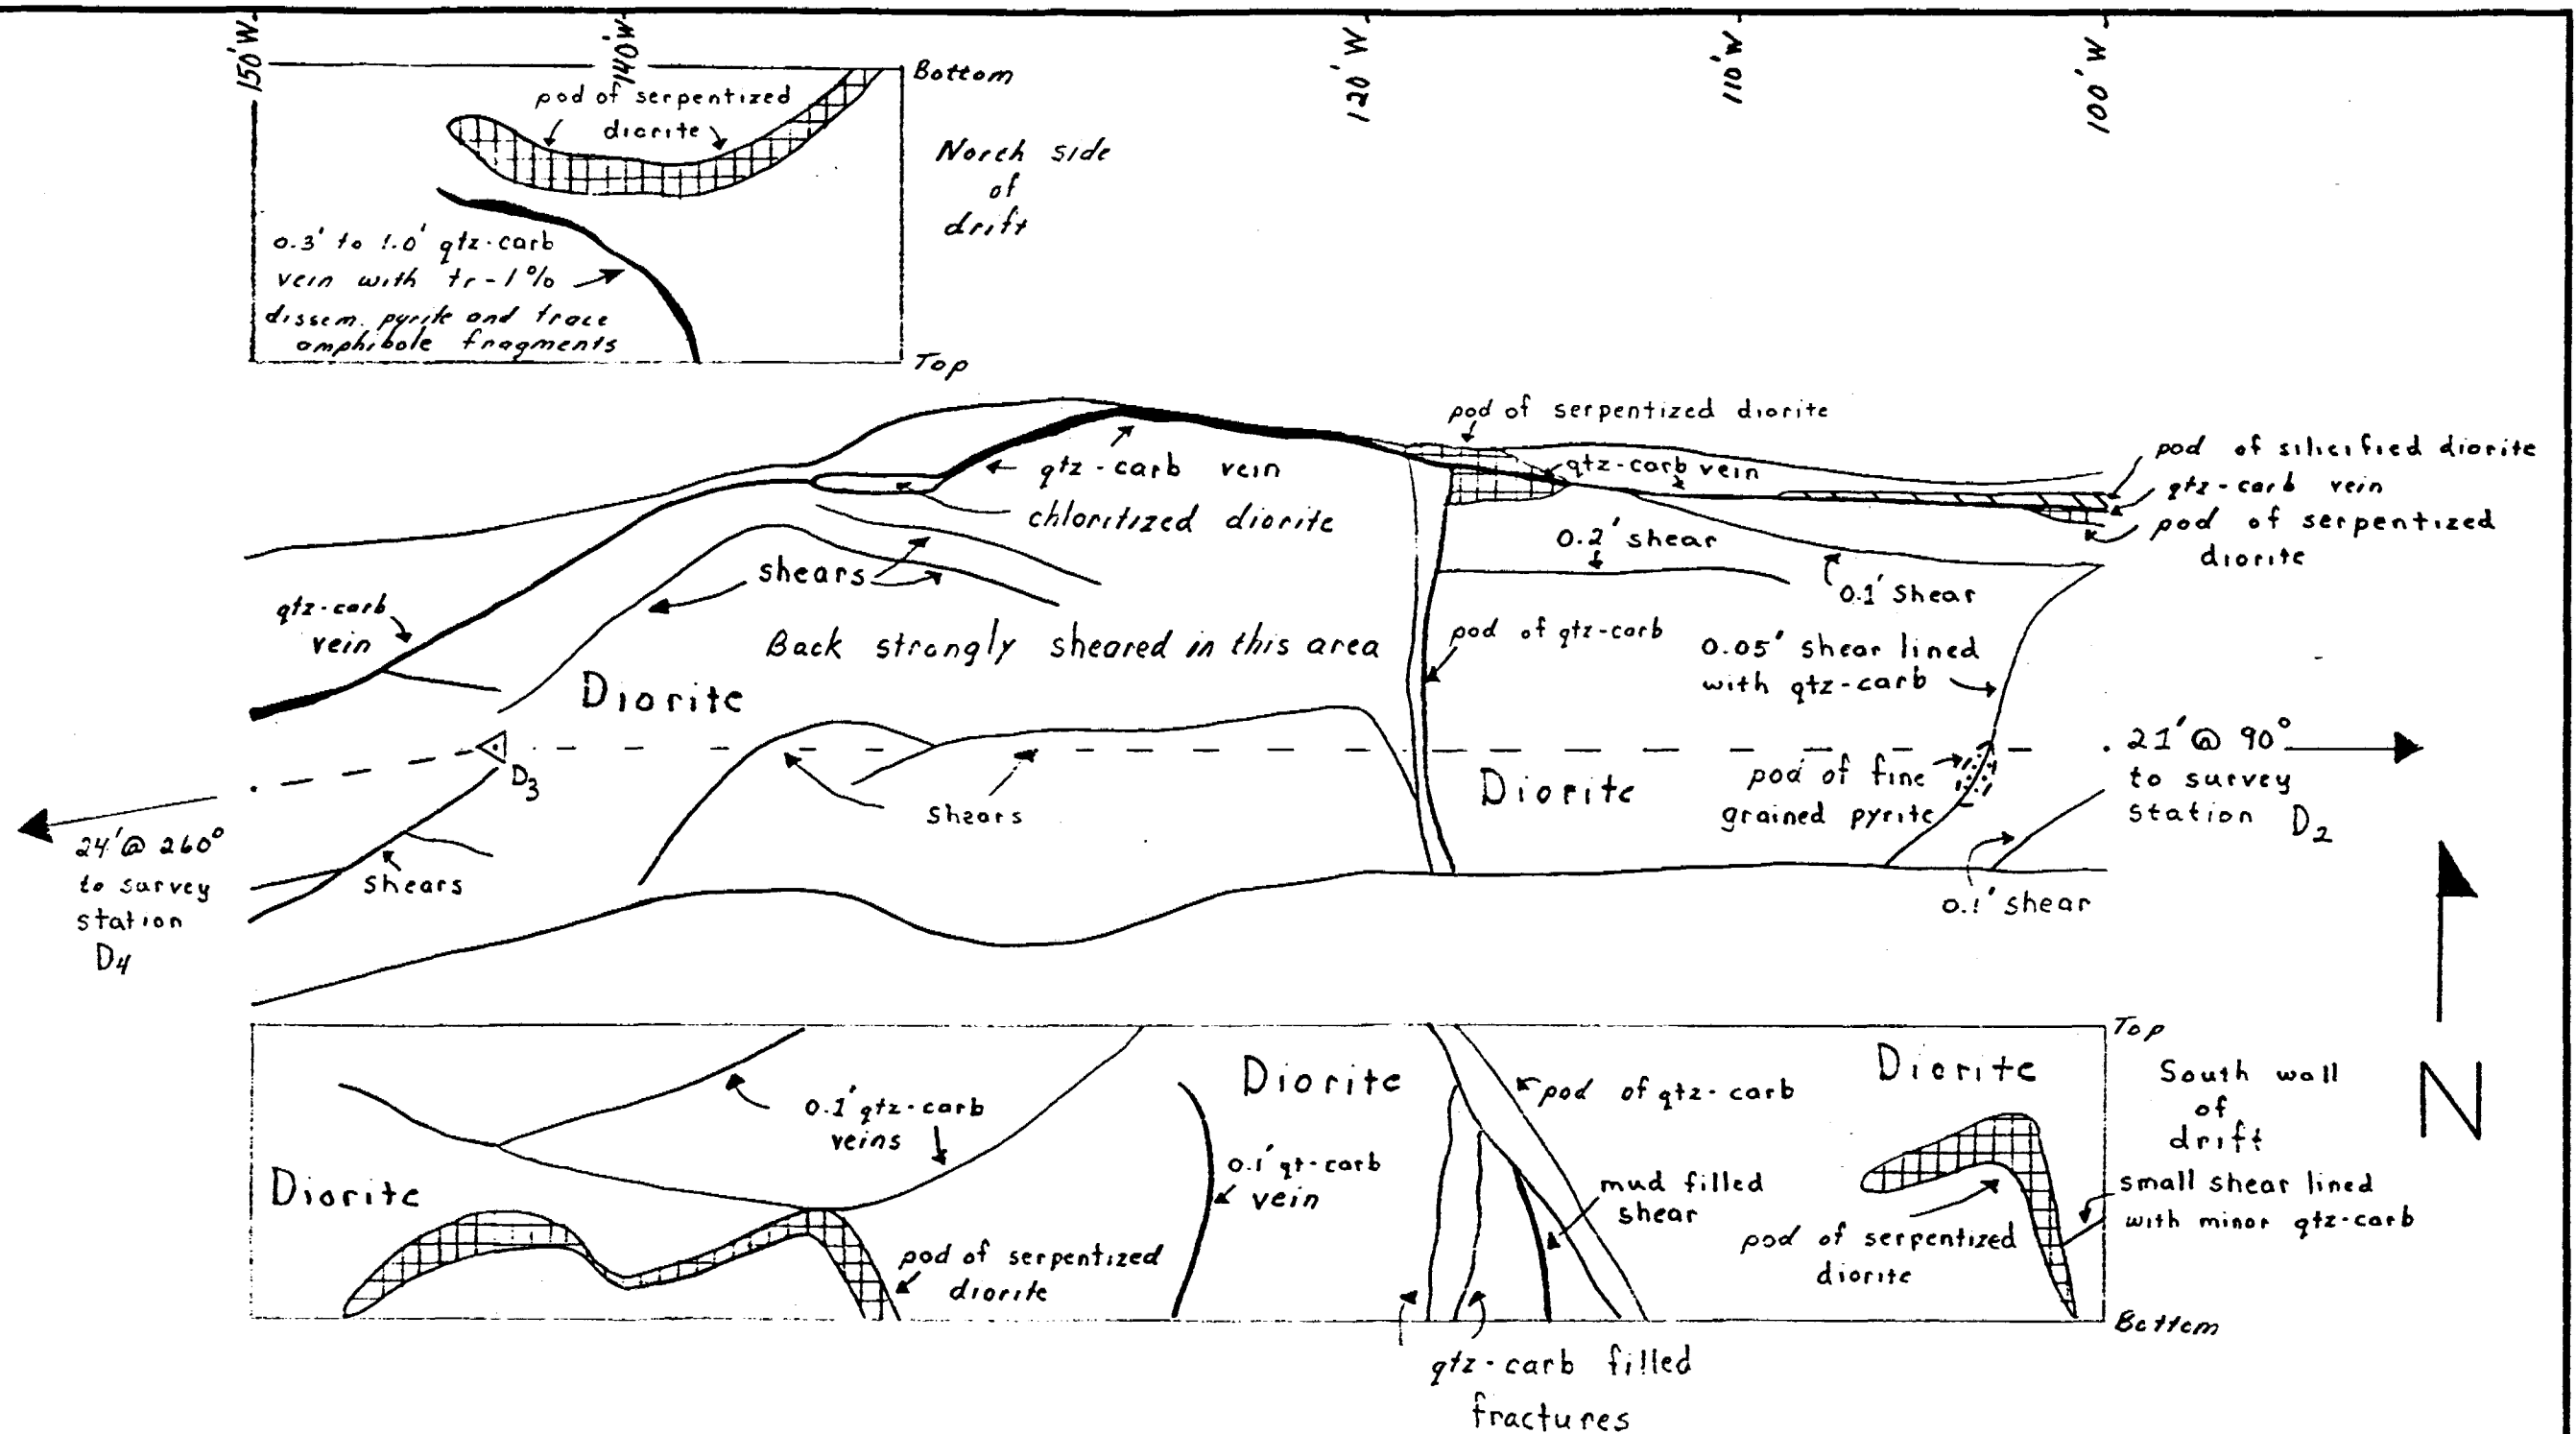 150'W
140'W
120'W
110'W
100'W
Bottom
pod of serpentized
diorite
North side
of
drift
0.3' to 1.0' qtz-carb
vein with tr-1%
dissem. pyrite and trace
amphibole fragments
Top
pod of serpentized diorite
pod of silicified diorite
qtz-carb vein
pod of serpentized
diorite
qtz-carb vein
qtz-carb vein
chloritized diorite
0.2' shear
0.1' shear
shears
qtz-carb
vein
Back strongly sheared in this area
pod of qtz-carb
0.05' shear lined
with qtz-carb
Diorite
D3
21' @ 90°
to survey
station D2
pod of fine
grained pyrite
Diorite
shears
24' @ 260°
to survey
station
D4
shears
0.1' shear
N
Top
Diorite
Diorite
South wall
of
drift
pod of qtz-carb
0.1' qtz-carb
veins
0.1' qt-carb
vein
Diorite
mud filled
shear
small shear lined
with minor qtz-carb
pod of serpentized
diorite
pod of serpentized
diorite
Bottom
qtz-carb filled
fractures